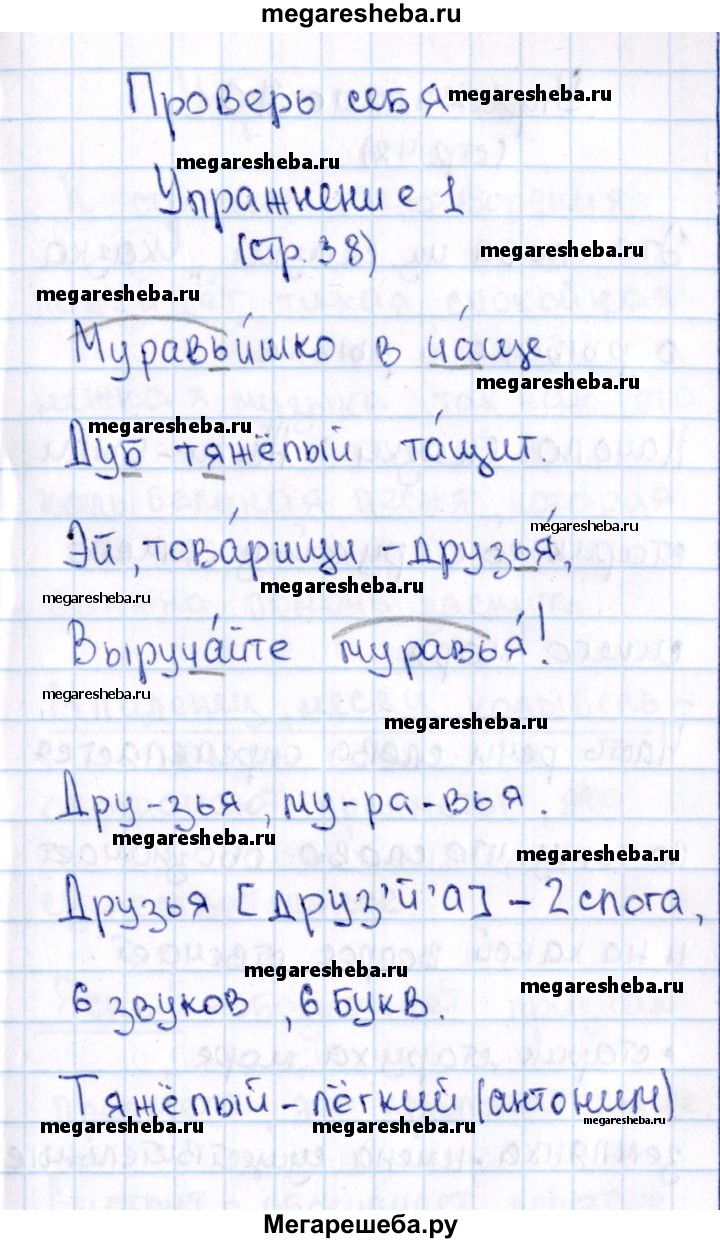 megaresheba.ru
Проверь себя megaresheba.ru
megaresheba.ru
Упражнение 1
(стр.38) megaresheba.ru
megaresheba.ru
Муравьи́шко в ча́ще
megaresheba.ru
megaresheba.ru
Дуб тяжёлый та́щит.
megaresheba.ru
Эй, това́рищи - друзья́,
megaresheba.ru megaresheba.ru
Выруча́йте муравья́!
megaresheba.ru
megaresheba.ru
Дру-зья, му-ра-вья.
megaresheba.ru
megaresheba.ru
Друзья [друз'й'а] - 2 слога,
megaresheba.ru
megaresheba.ru
6 звуков, 6 букв.
Тяжёлый - лёгкий (антоним)
megaresheba.ru megaresheba.ru megaresheba.ru
Мегарешеба.ру